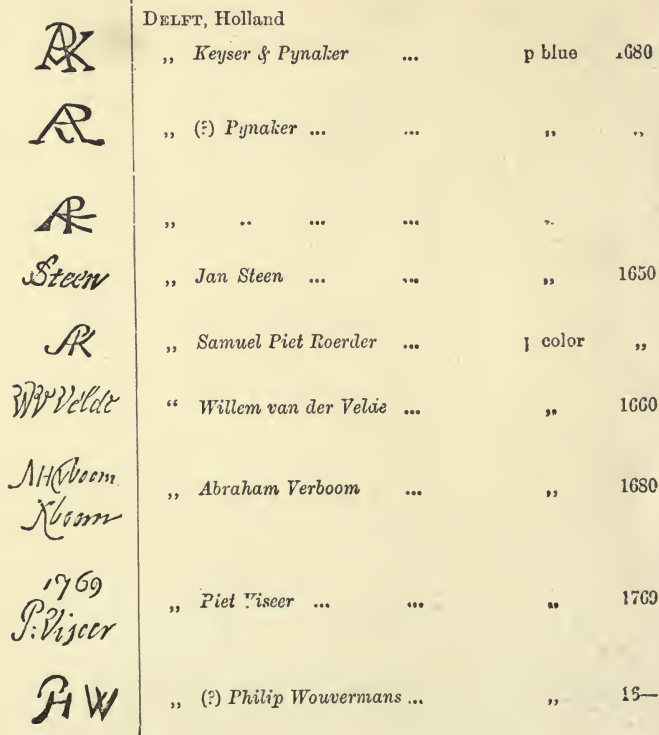 DELFT, Holland
APK ,, Keyser & Pynaker ... p blue 1680
AR ,, (?) Pynaker ... ... ,, ,,
,, ,, ... ... ,,
Steen ,, Jan Steen ... ... ,, 1650
,, Samuel Piet Roerder ... p color ,,
WV Velde “ Willem van der Velde ... ,, 1660
AHVboom ,, Abraham Verboom ... ,, 1680
Vboom
1769
P:Viseer ,, Piet Viseer ... ... ,, 1769
PH W ,, (?) Philip Wouvermans ... ,, 16—